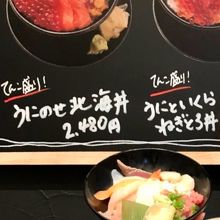 てんこ盛り!
うにのせ北海丼
2,480円
てんこ盛り!
うにといくら
ねぎとろ丼